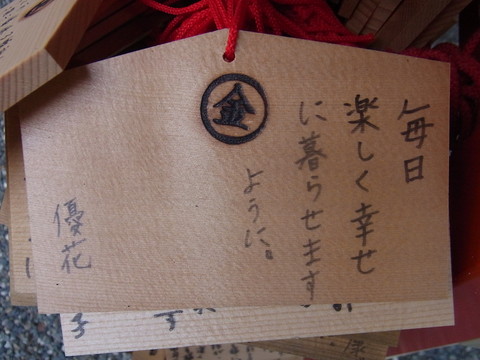 毎日
楽しく幸せ
に暮らせます
ように。
金
優花
子